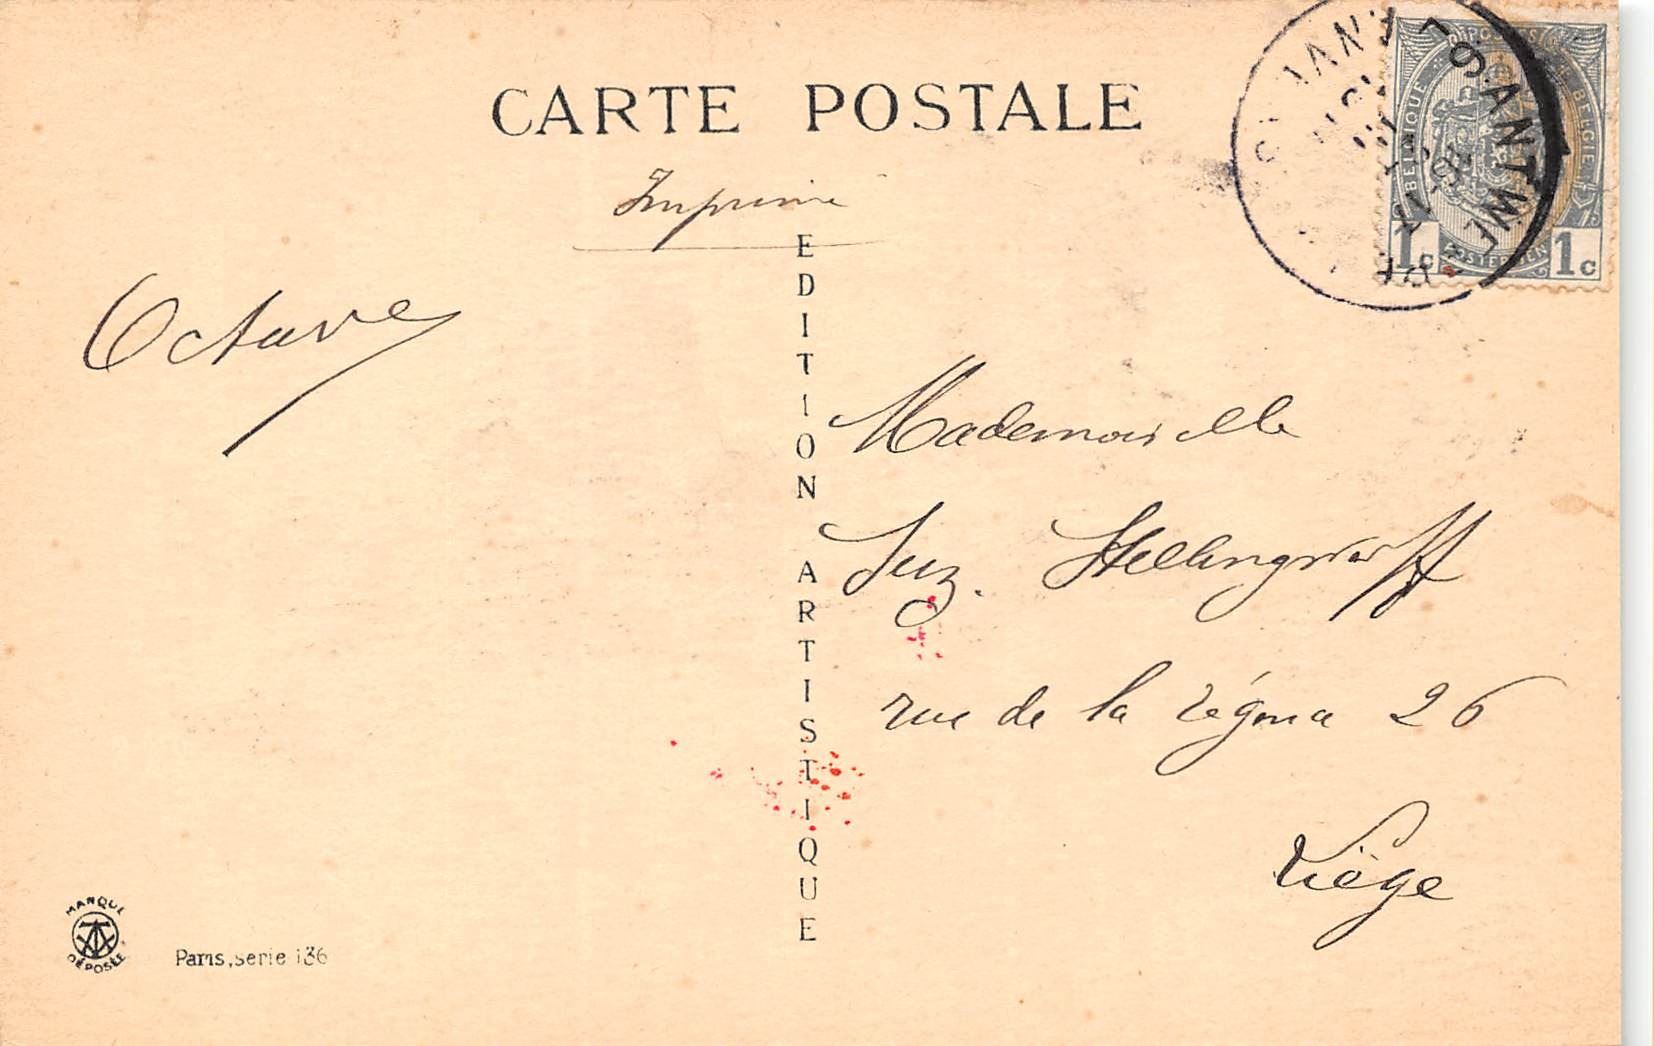 CARTE POSTALE
Imprimé
EDITION ARTISTIQUE
Octave
Mademoiselle
Suz. Stellingwerff
rue de la 26
Liège
BELGIQUE
BELGIË
1c 1c
POSTERIJEN
ANTWERPEN
ANVERS
MARQUE
DÉPOSÉE
Paris, serie 136